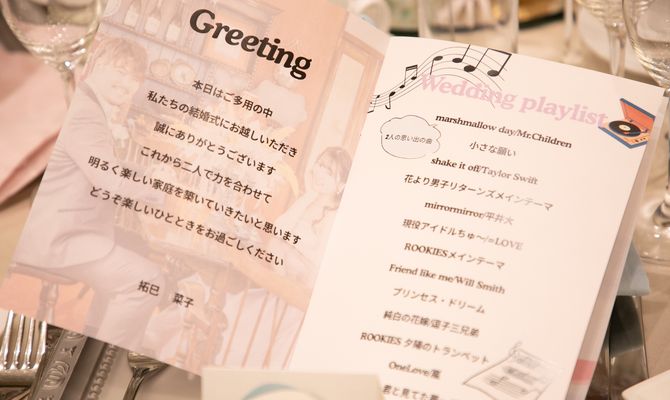 Greeting
本日はご多用の中
私たちの結婚式にお越しいただき
誠にありがとうございます
これから二人で力を合わせて
明るく楽しい家庭を築いていきたいと思います
どうぞ楽しいひとときをお過ごしください
拓巳 菜子
Wedding playlist
2人の思い出の曲
marshmallow day/Mr.Children
小さな願い
shake it off/Taylor Swift
花より男子リターンズメインテーマ
mirrormirror/平井大
現役アイドルちゅ〜/=LOVE
ROOKIESメインテーマ
Friend like me/Will Smith
プリンセス・ドリーム
純白の花嫁/逗子三兄弟
ROOKIES 夕陽のトランペット
OneLove/嵐
君と見てた